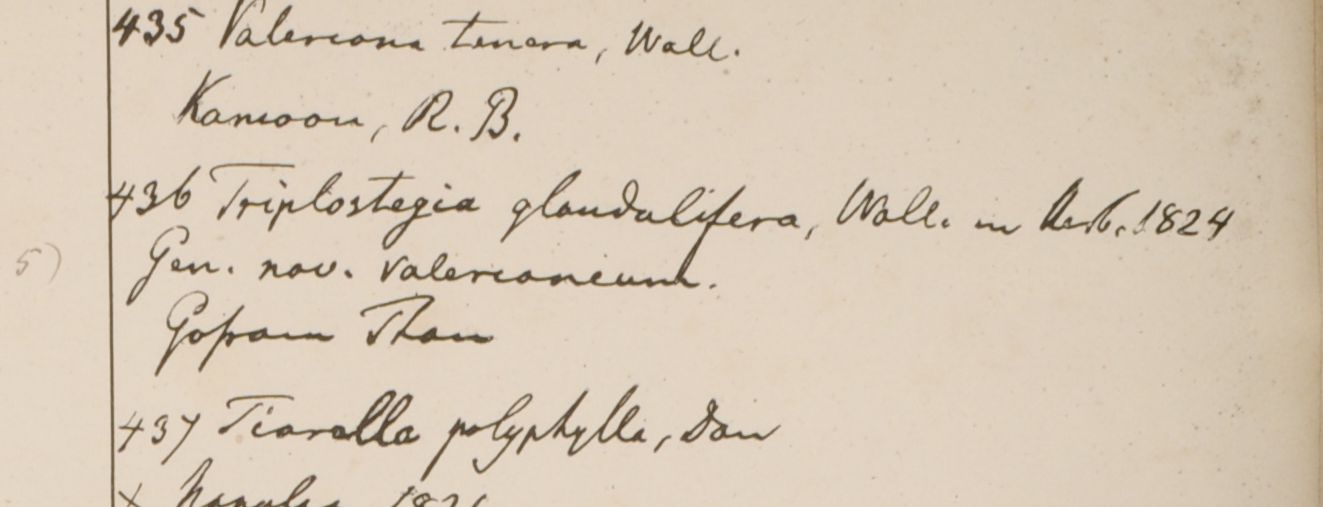 435 Valeriana tenera, Wall.
Kamoon, R. B.
436 Triplostegia glandulifera, Wall. in Herb. 1824
Gen. nov. valerianeum.
5)
Gosain Than
437 Tiarella polyphylla, Don